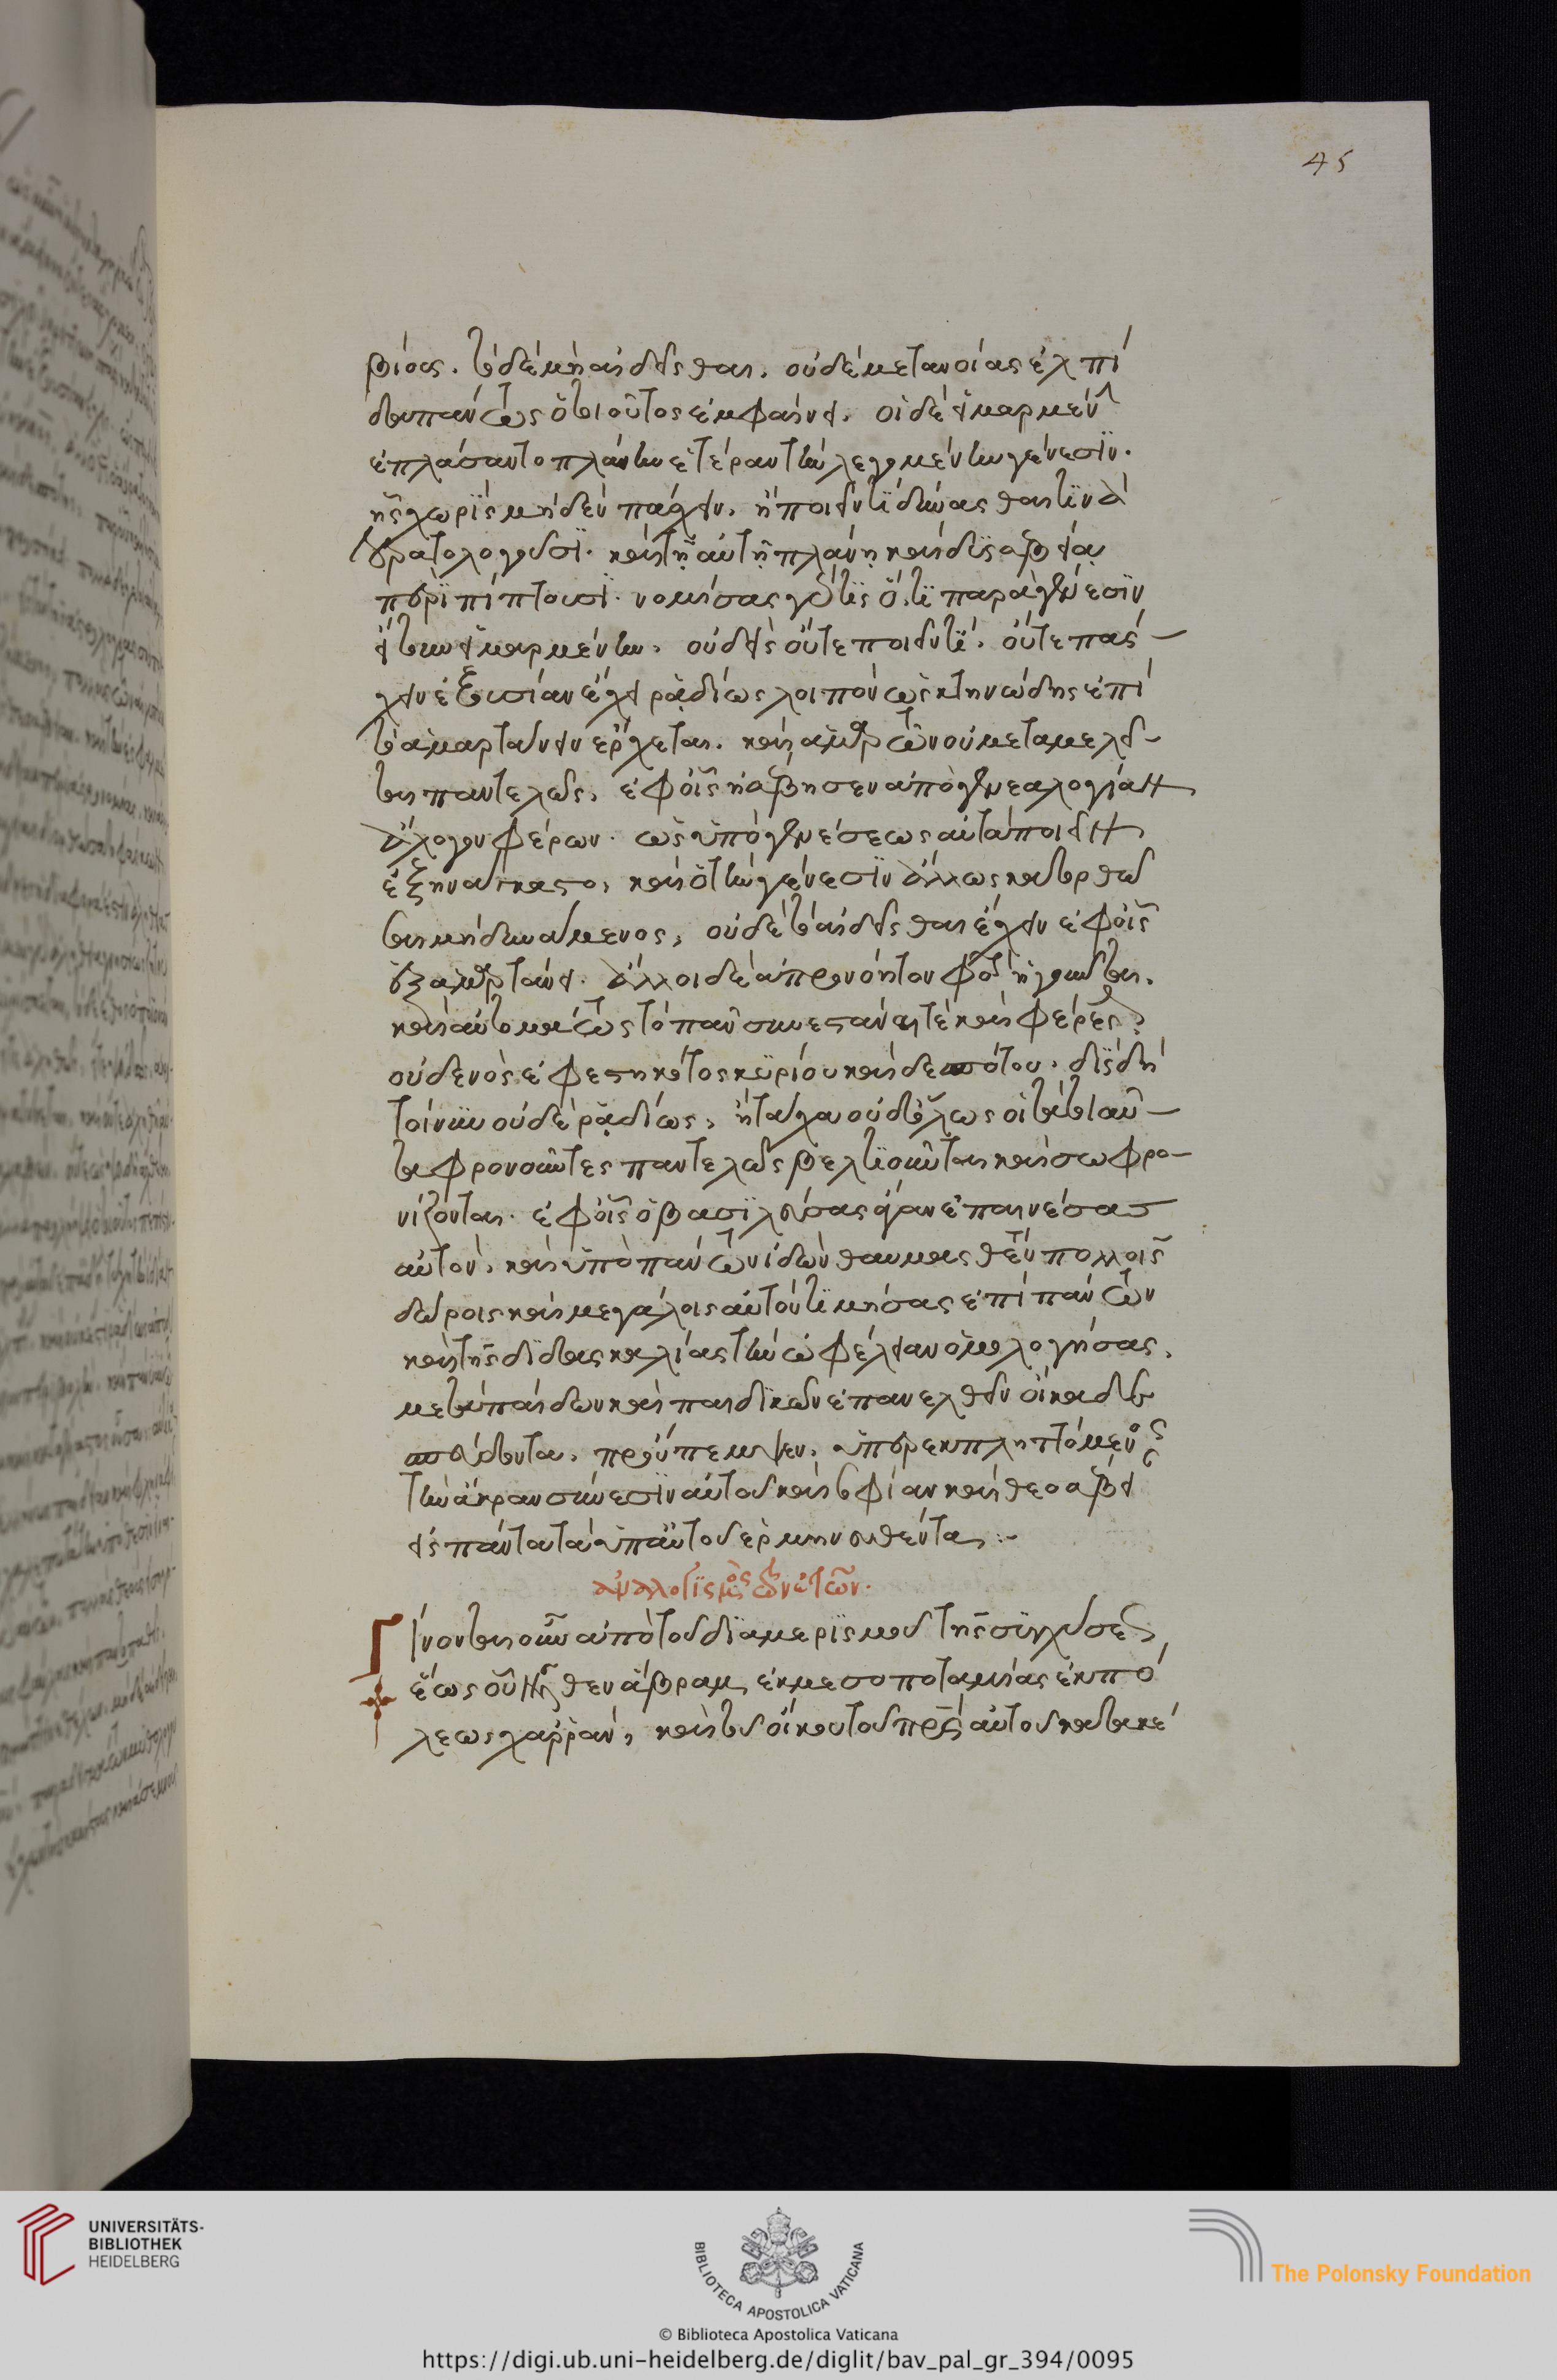 45
βίας. τὸ δὲ μὴ αἰδεῖσθαι. οὐδὲ μετανοίας ἐλπί
δα πάντως ὁ τοιοῦτος ἐμφαίνει. οἱ δὲ εἱμαρμένην
ἐπλάσαντο πλάνην ἑτέραν τὴν λεγομένην γένεσιν.
ἧς χωρὶς μηδὲν πάσχειν. ἢ ποιεῖν τι δύνασθαι τινὰ
τερατολογοῦσι. καὶ τῇ αὐτῇ πλάνῃ καὶ δυσσεβείᾳ
περιπίπτουσι. νομίσας γάρ τις ὅτι παρὰ γένεσιν
εἴτουν εἱμαρμένην. οὐδεὶς οὔτε ποιεῖν τι. οὔτε πάσ-
χειν ἐξουσίαν ἔχει ῥᾳδίως λοιπὸν ὡς κτηνώδης ἐπὶ
τὸ ἁμαρτάνειν ἔρχεται. καὶ ἁμαρτὼν οὐ μεταμελεῖ-
ται παντελῶς. ἐφ' οἷς ἠσέβησεν ἀπὸ γενεαλογίαν
ἄλογον φέρων. ὡς ὑπὸ γενέσεως αὐτὰ ποιεῖν
ἐξηνάγκαστο, καὶ ὅτι τὴν γένεσιν ἄλλως κατορθῶ
σαι μὴ δυνάμενος, οὐδὲ τὸ αἰδεῖσθαι ἔχειν ἐφ' οἷς
ἐξαμαρτάνει. ἄλλοι δὲ ἀπρονόητον ἡγοῦνται.
καὶ αὐτομάτως τὸ πᾶν συνεστάναι τὲ καὶ φέρεσθαι.
οὐδενὸς ἐφεστηκότος κυρίου καὶ δεσπότου. διὸ δὴ
τοίνυν οὐδὲ ῥᾳδίως, ἢ τάχα οὐδ' ὅλως οἱ τὰ τοιαῦ-
τα φρονοῦντες παντελῶς βελτιοῦνται καὶ σωφρο-
νίζονται. ἐφ' οἷς ὁ βασιλεὺς ἄγαν ἐπαινέσας
αὐτὸν, καὶ ὑπὸ πάντων ἰδὼν θαυμασθέντα πολλοῖς
δώροις καὶ μεγάλοις αὐτὸν τιμήσας ἐπὶ πάντων
καὶ τῆς διδασκαλίας τὴν ὠφέλειαν ὁμολογήσας,
μετὰ παίδων καὶ παιδικῶν ἐπανελθεῖν οἴκαδε
σπεύδοντα. προύπεμψεν. ὑπερεκπληττόμενος
τὴν ἄκραν σύνεσιν αὐτοῦ καὶ σοφίαν καὶ θεοσέβει
εἰς πάντα τὰ ὑπ' αὐτοῦ ἑρμηνευθέντα:-
ἀναλογισμὸς τῶν ἐτῶν.
Γίνονται οὖν ἀπὸ τοῦ διαμερισμοῦ τῆς συγχύσεως
ἕως οὗ ἦλθεν ἄβραμ ἐκ μεσοποταμίας ἐκ πό
λεως χαρράν, καὶ τοῦ οἴκου τοῦ πρς αὐτοῦ
UNIVERSITÄTS-
BIBLIOTHEK
HEIDELBERG
BIBLIOTECA APOSTOLICA VATICANA
The Polonsky Foundation
© Biblioteca Apostolica Vaticana
https://digi.ub.uni-heidelberg.de/diglit/bav_pal_gr_394/0095